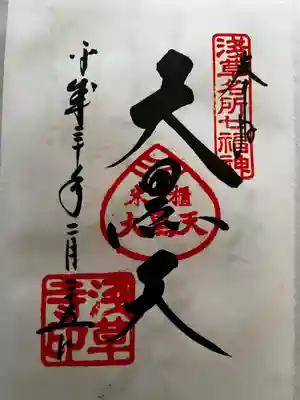 浅草名所七福神
奉拝
大黒天
米櫃
大黒天
平成三十年二月二十五日
浅草
寺印